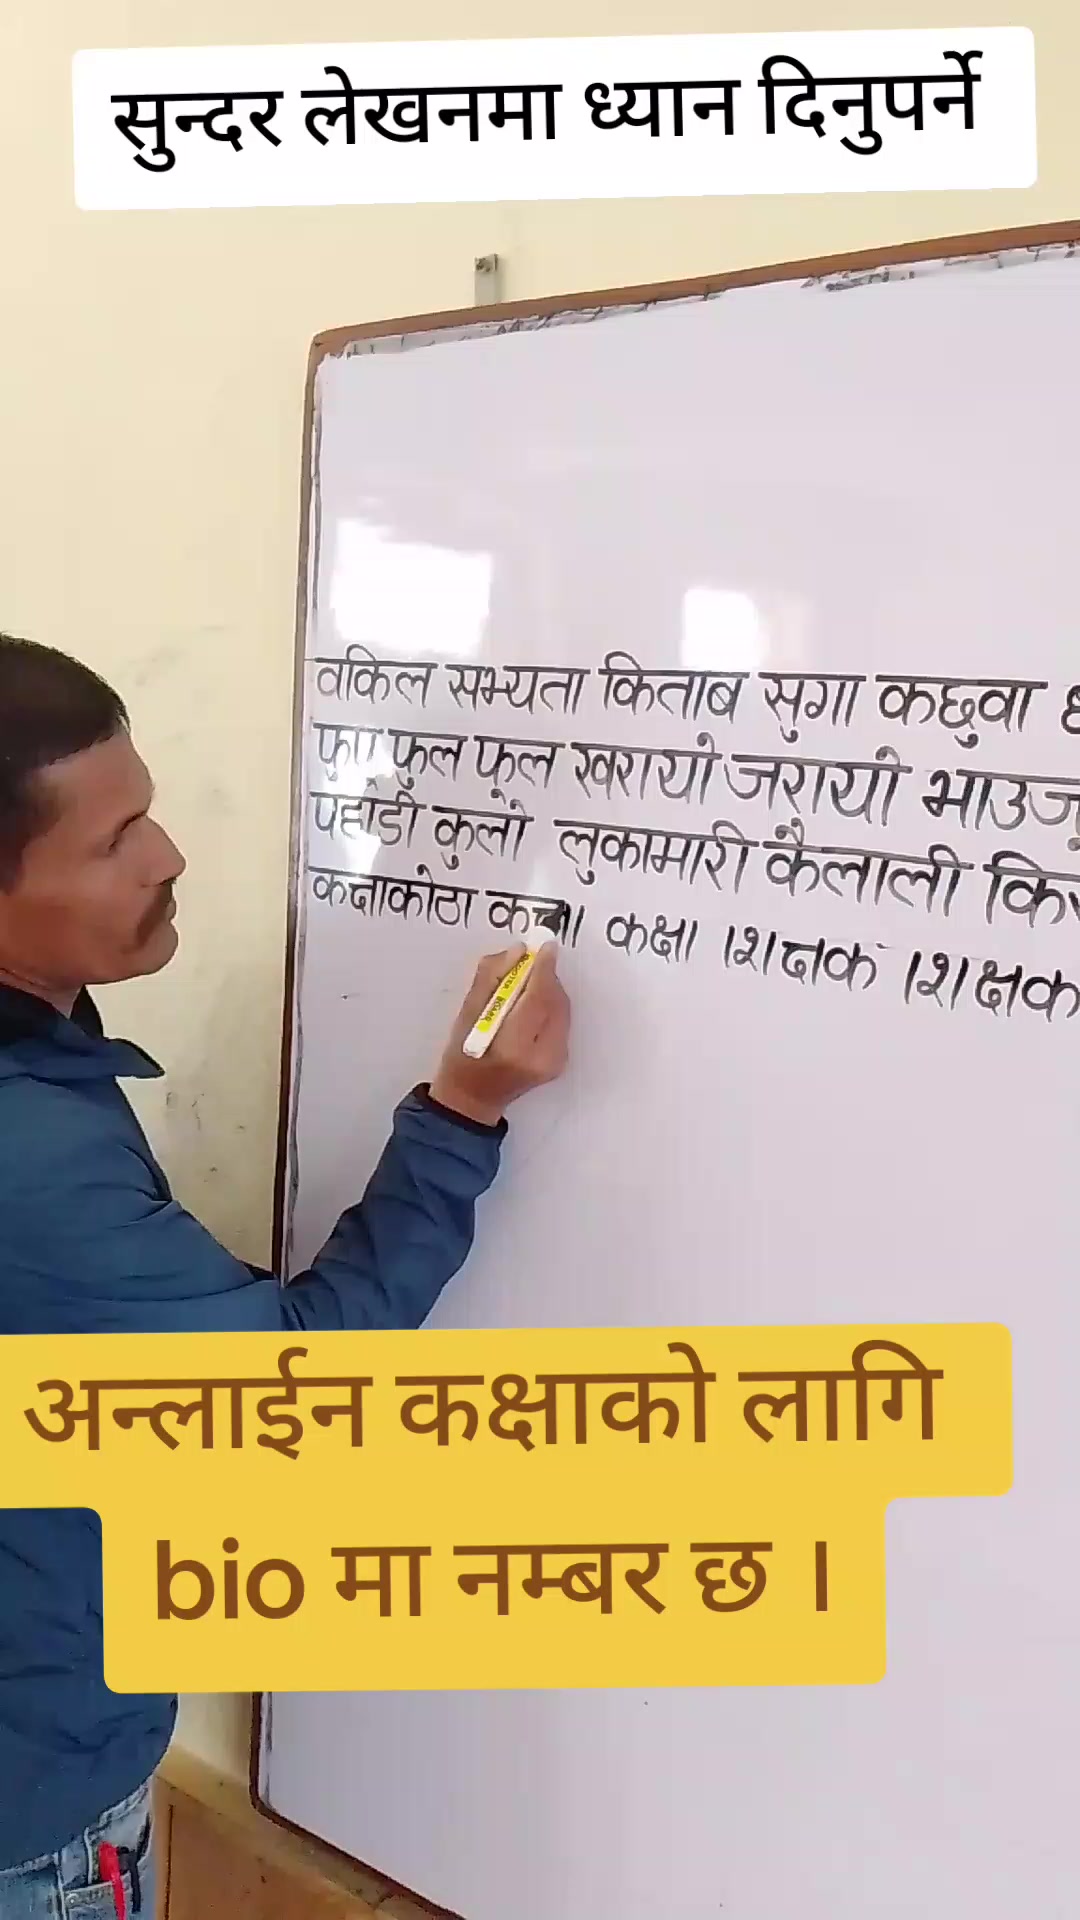 सुन्दर लेखनमा ध्यान दिनुपर्ने
वकिल सभ्यता किताब सुगा कछुवा
फुल फूल खरायो जरायो
पहाडी कुलो लुकामारी कैलाली
कक्षाकोठा कक्षा शिक्षक शिक्षक
अन्लाईन कक्षाको लागि
bio मा नम्बर छ ।